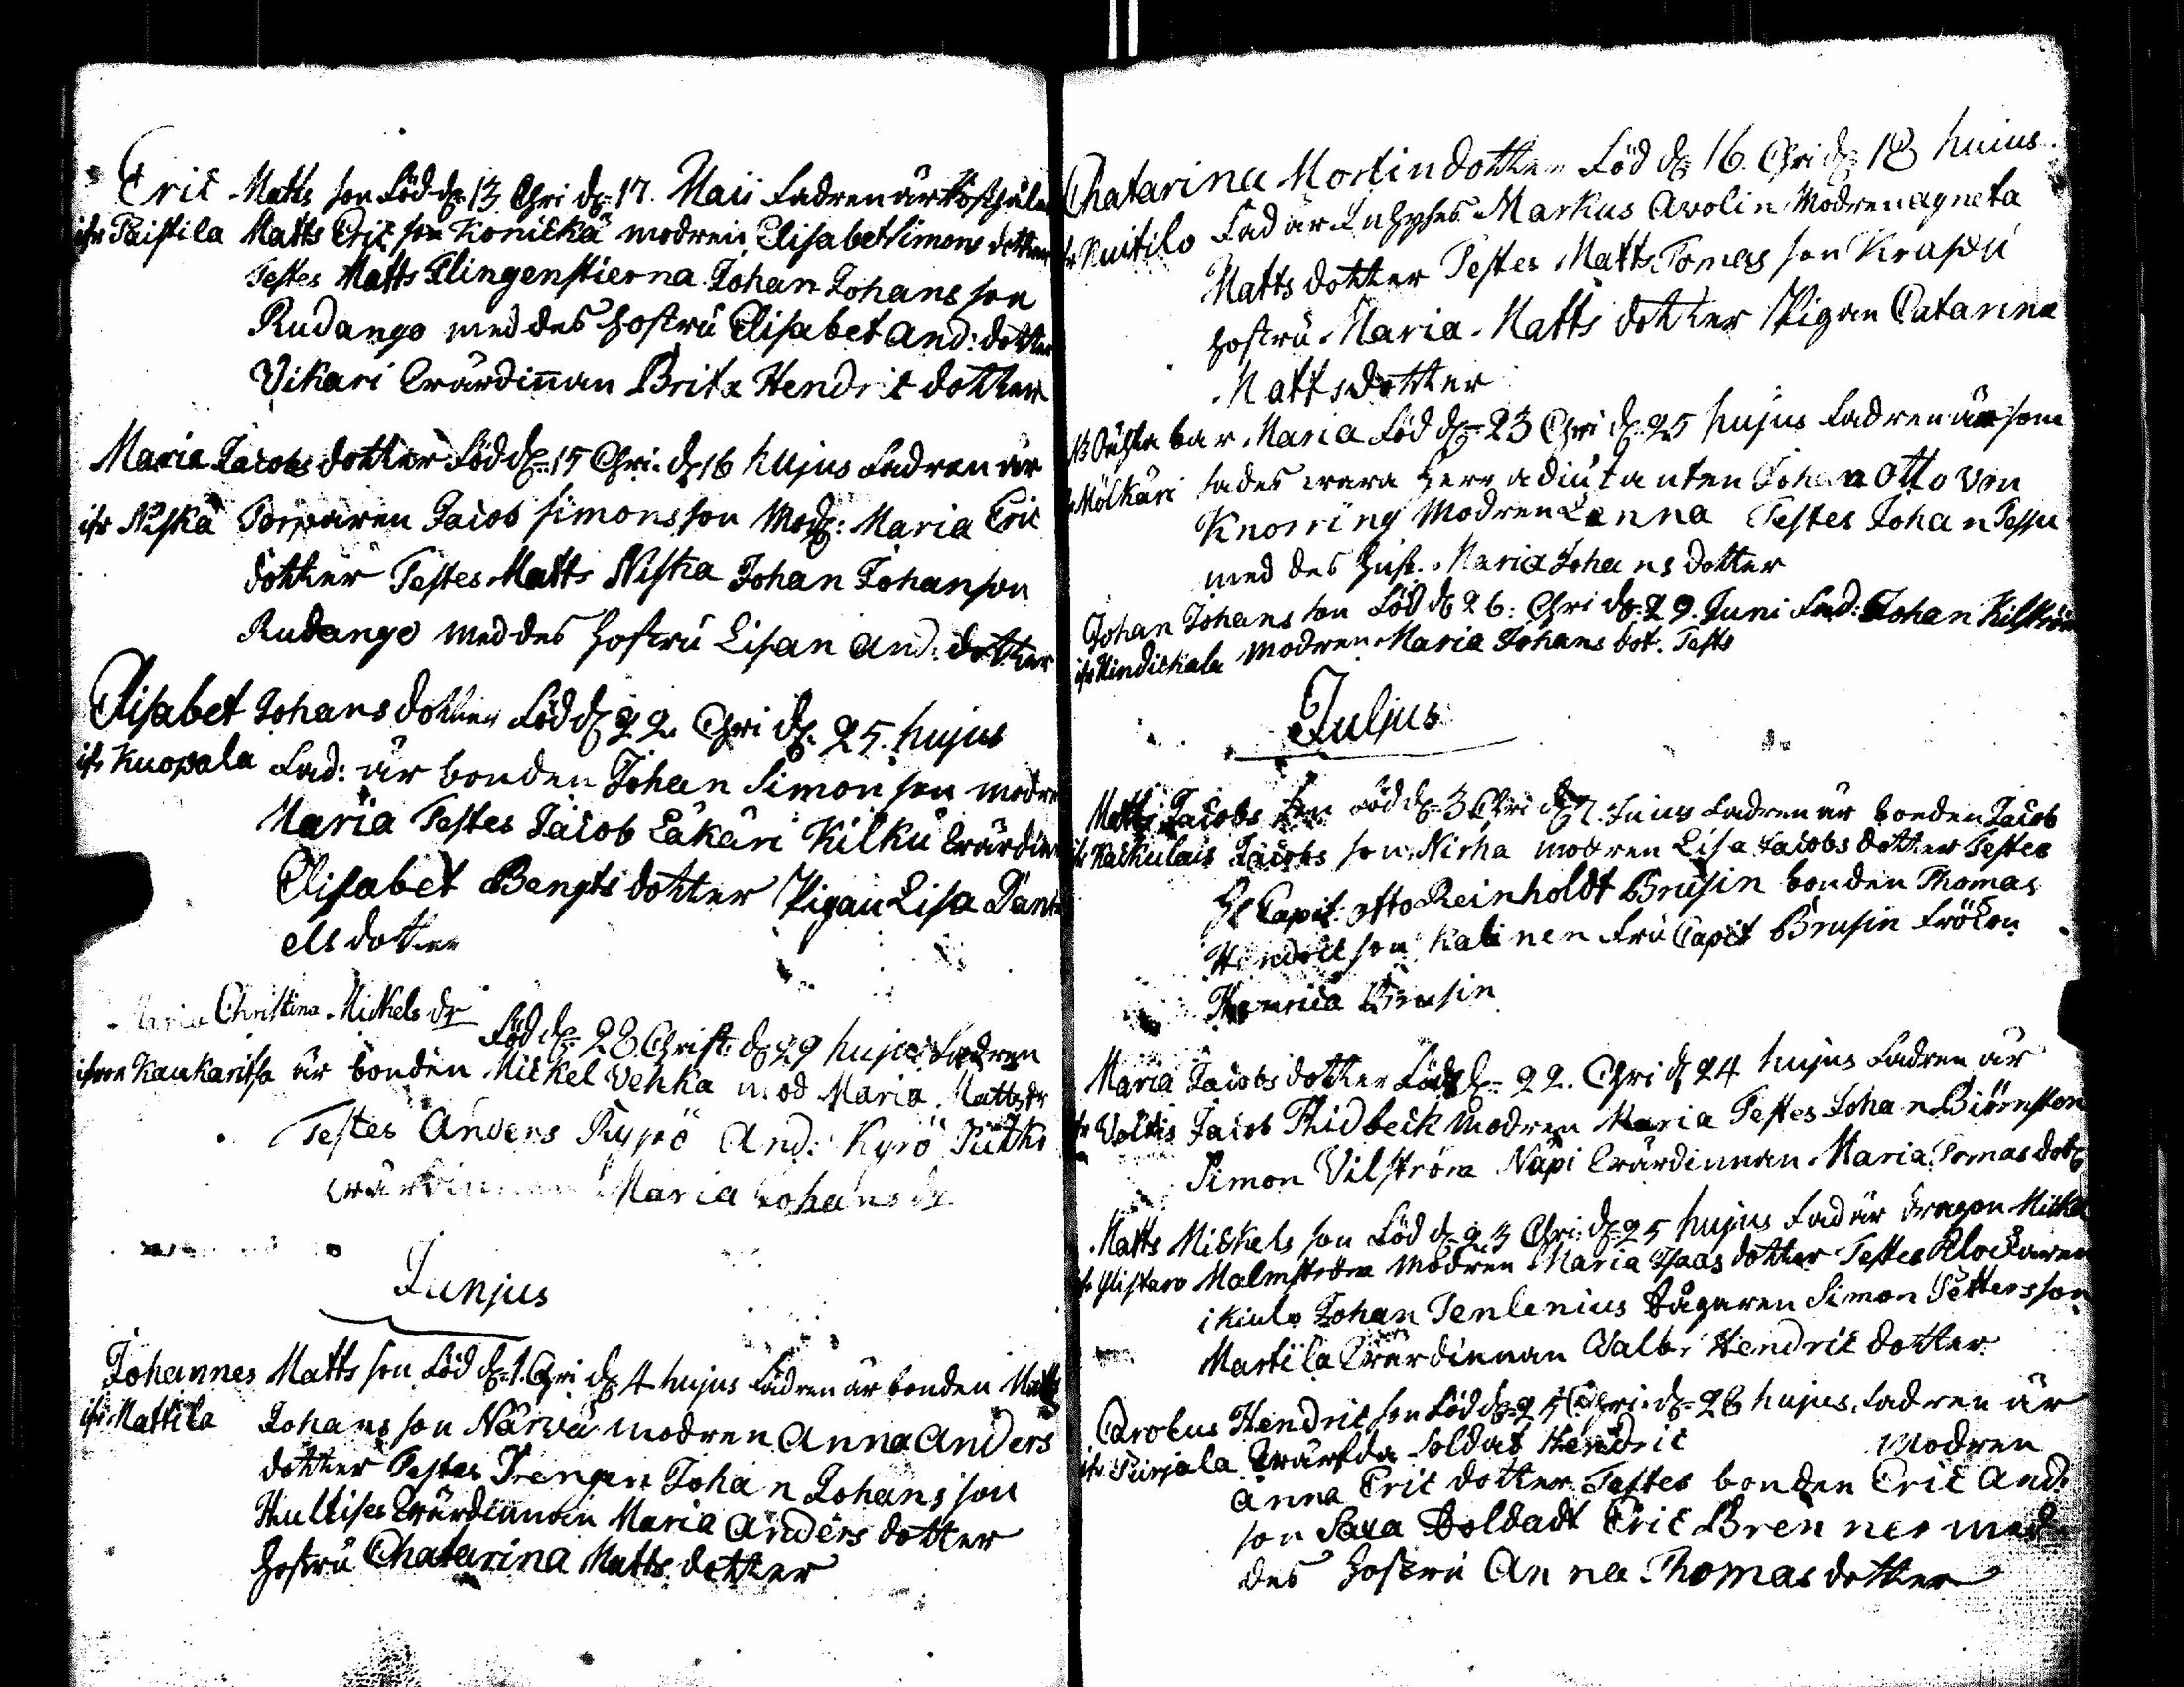 Eric Matts son Född dz 13 Chri dz 17. Maii Fadren är
ifr Paistila Matts Eric son Konickä modren Elisabet Simons dotter
Testes Matts Klingenstierna Johan Johans son
Rudango med des hostru Elisabet And: dotter
Vikari wärdinnan Brita Hendric dotter
Maria Jacobs dotter Född dz 15 Chri. dz 16 hujus Fadren är
ifr Niska Torparen Jacob Simons son Modr: Maria Eric
dotter Testes Matts Niska Johan Johanson
Rudango med des hostru Lisan And: dotter
Elisabet Johans dotter Född dz 22. Chri dz. 25. hujus
ifr Kuopala Fad: är bonden Johan Simon son modre
Maria Testes Jacob Läkäri Kilku wärdin
Elisabet Bengts dotter Pigan Lisa Dani
els dotter
Maria Christina Mickels dr
Född dz 28 Christ: dz 29 hujus Fadren
ifrån Kaukaritsa är bonden Mickel Vehka mod Maria Matts dr
Testes Anders Rypö And: Kyrö Pütki
wärdinnan Maria Johans dr
Junjus
Johannes Matts son Född dz 1. Chri dz 4 hujus Fadren är bonden Matts
ifr Mattila Johans son Närvä modren Anna Anders
dotter Testes Drengen Johan Johans son
Hultises wärdinnan Maria Anders dotter
hostru Chatarina Matts dotter
Chatarina Mortin dotter Född dz 16. Chri dz 18 huius
ifr Kuitilo Fad är Markus Avolin Modren agneta
Matts dotter Testes Matts Tomas son Krasu
hostru Maria Matts dotter Pigan Catarina
Matts dotter
bar Maria Född dz 23 Chri dz 25 hujus Fadren är som
Mölkäri sades wara Herr adiutanten Johan Otto von
Knorring Modren Lenna Testes Johan Tessu
med des hust. Maria Johans dotter
Johan Johans son Född dz 26: Chri dz 29. Juni Fad: Johan Kilström
ifr Hindickala Modren Maria Johans dot. Tests
Juljus
Matts Jacobs son Född dz 3 Chri dz 7. huius Fadren är bonden Jacob
ifr Kaskulais Jacobs son Nirha modren Lisa Jacobs dotter Testes
Hr Capit: Otto Reinholdt Brusin bonden Thomas
Hendric son Kalinen Fru Capit Brusin Fröken
Henrica Brusin
Maria Jacobs dotter Född dz 22. Chri dz 24 hujus Fadren är
ifr Voltis Jacob Thidbeck Modren Maria Testes Johan Biörnsten
Simon Vilström Näpi wärdinnan Maria Tomas dotr
Matts Mickels son Född dz 23 Chri: dz 25 hujus Fad är dragon Mickel
ifr Ylistaro Malmström Modren Maria Isaas dotter Testes Klockaren
i kiulo Johan Tenlenius Bågaren Simon Petters son
Martila wärdinnan Valbr Hendric dotter
Carolus Hendric son Född dz 24 Chri. dz 28 hujus. Fadren är
ifr Purjala wärfda soldat Hendric Modren
Anna Eric dotter Testes bonden Eric And:
son Saxa Soldadt Eric Brenner med
des hostru Anna Thomas dotter